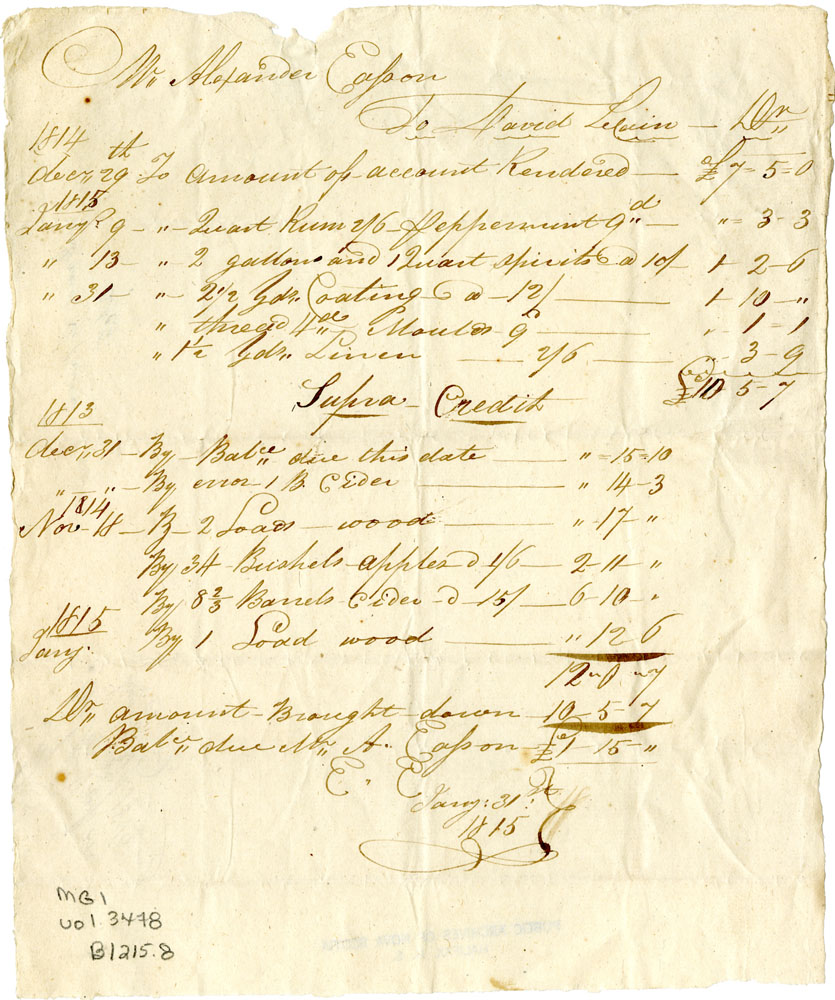 Mr Alexander Easson
To David Lecain — Dr
1814
decr 29th To amount of account Rendered — £7=5=0
1815
Jany 9 - " - Quart Rum 2/6 - Peppermint 9d — " = 3 - 3
" 13 - " - 2 gallons and 1 Quart spirits @ 10/ 1 - 2 - 6
" 31 - " - 2 1/2 Yds Coating @ - 12/ — 1 - 10 - "
" thread 4d Moulds 9 — " - 1 = 1
" 1 1/2 Yds Linen — 2/6 — " - 3 - 9
£10 - 5 - 7
Supra - Credit
1813
decr 31 - By - Balce due this date — " = 15 = 10
" - " - By error 1 B. Cider — " 14 - 3
1814
Nov 18 - By - 2 Loads - wood — " - 17 - "
By 34 - Bushels - apples @ 1/6 - 2 - 11 - "
By 8 2/3 Barrels Cider @ 15/ - 6 - 10 - "
1815
Jany. By 1 Load wood — " 12 6
12 " 0 " 7
Dr amount - Brought - down - 10 - 5 - 7
Balce due Mr A. Easson - £1 - 15 - "
E. E
Jany: 31st
1815
MG 1
vol. 3478
B1215.8
PUBLIC ARCHIVES OF NOVA SCOTIA